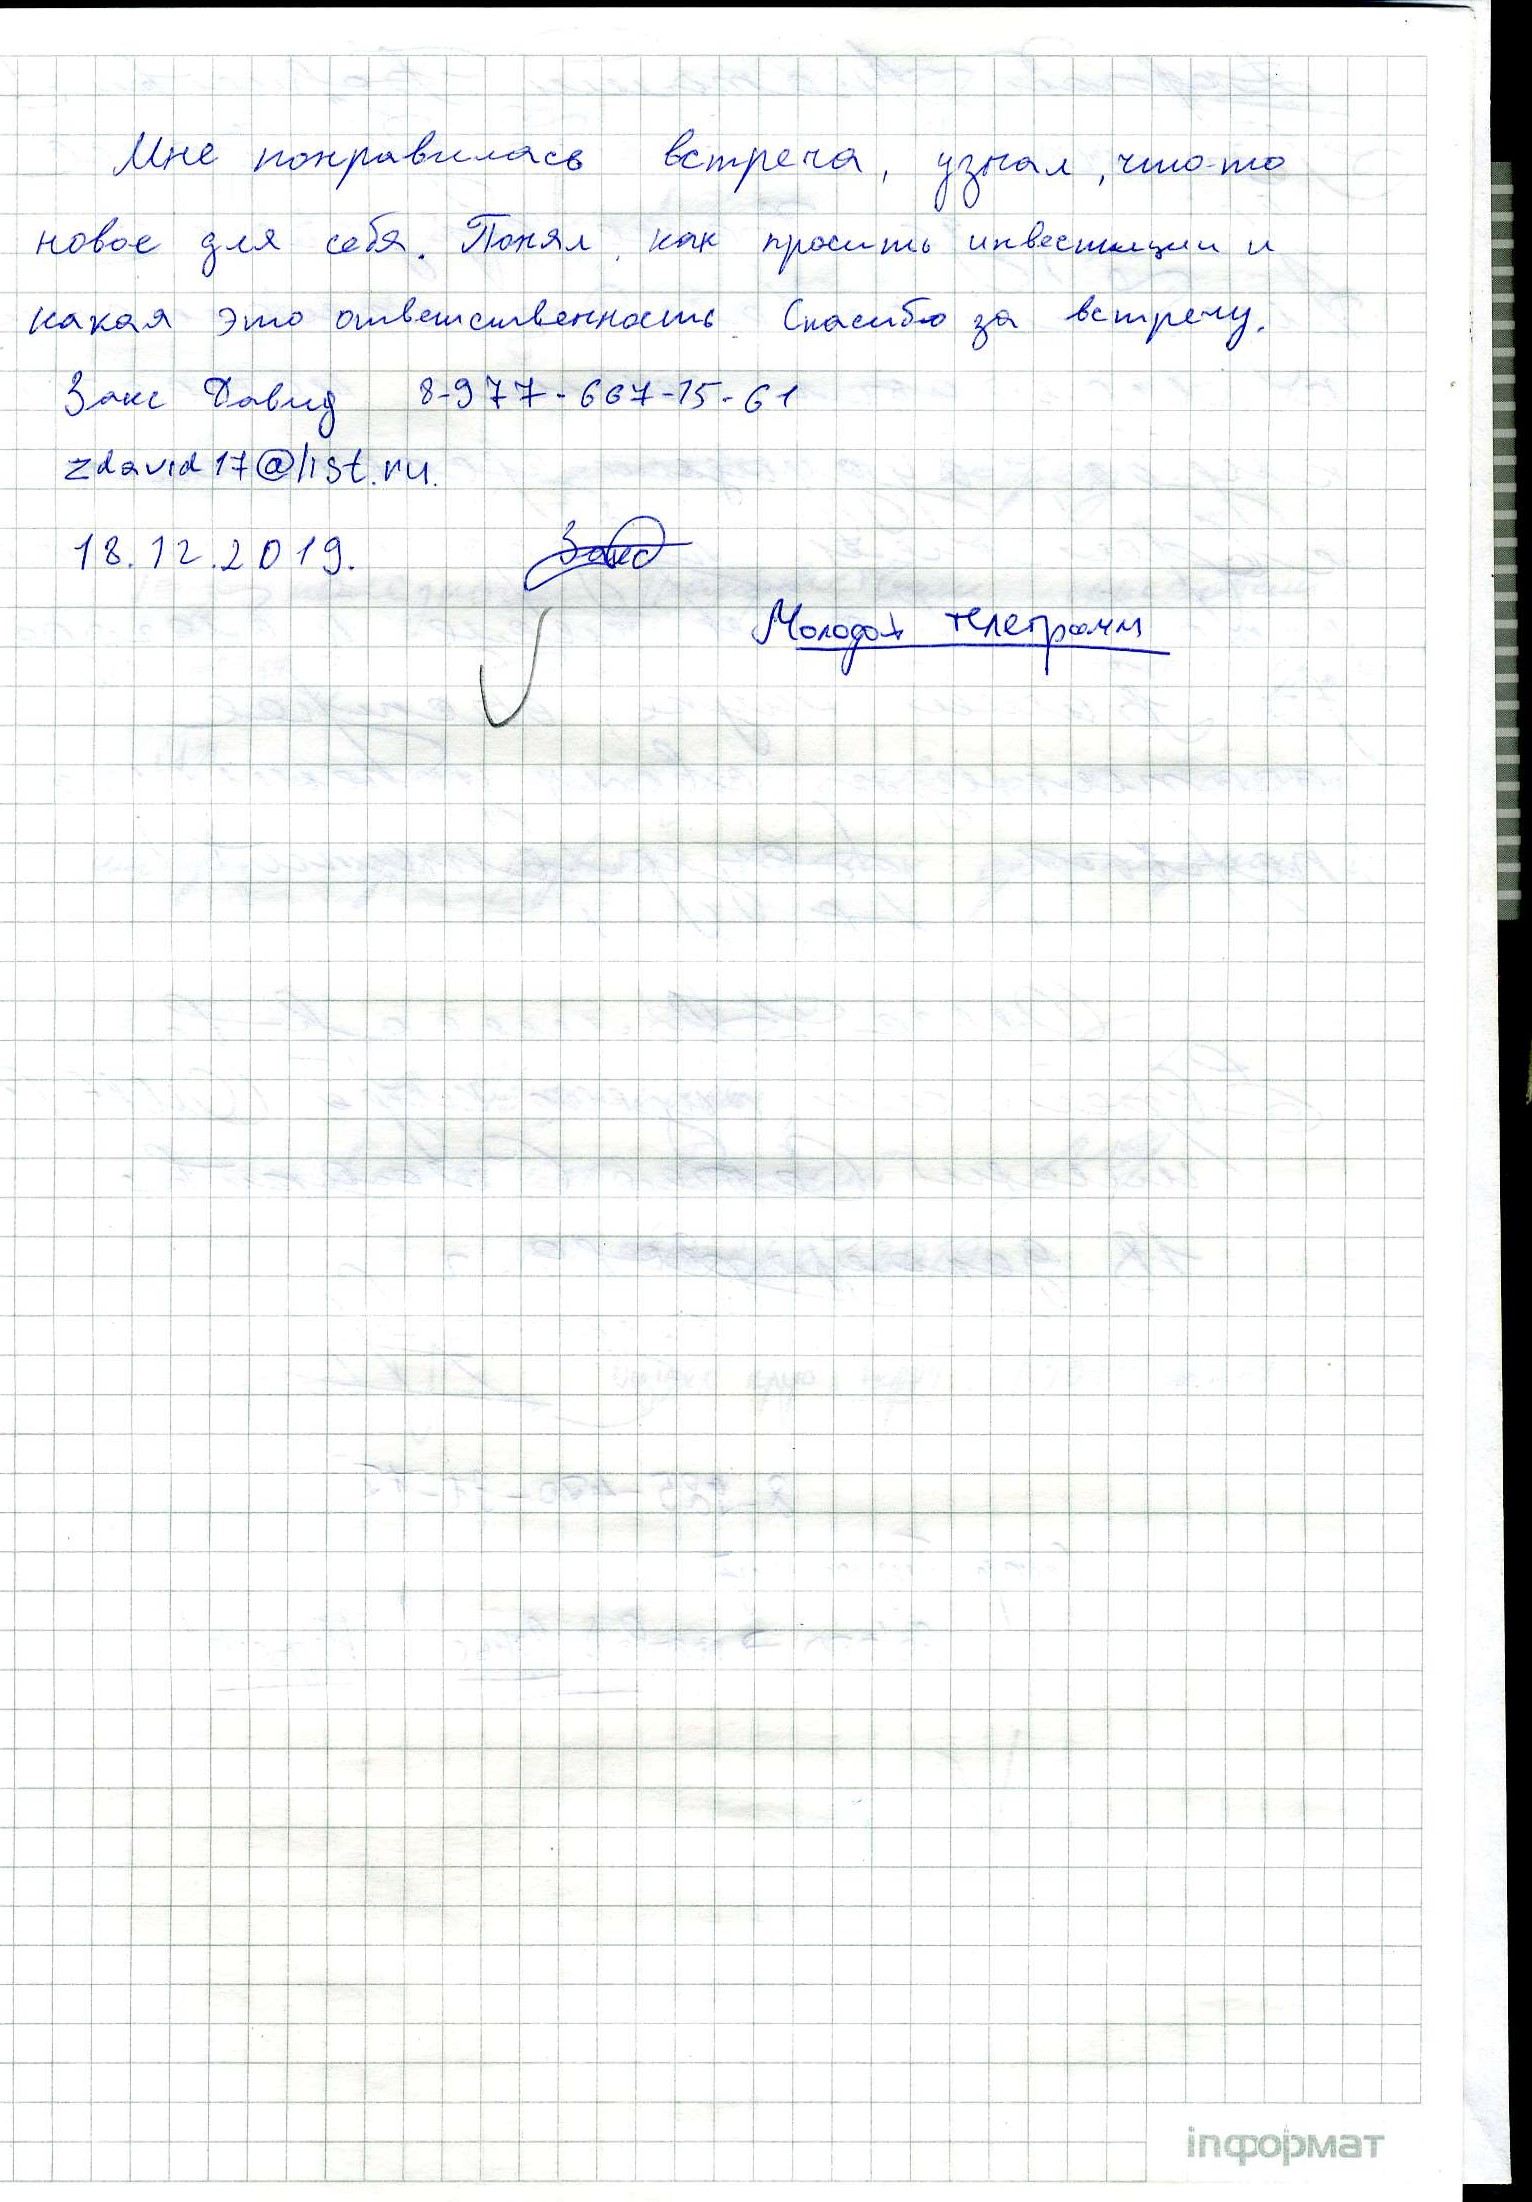 Мне понравилась встреча, узнал, что-то
новое для себя. Понял, как просить инвестиции и
какая это ответственность. Спасибо за встречу.
Закс Давид 8-977-667-15-61
zdavid17@list.ru.
18.12.2019.
Закс
телеграмм
inформат